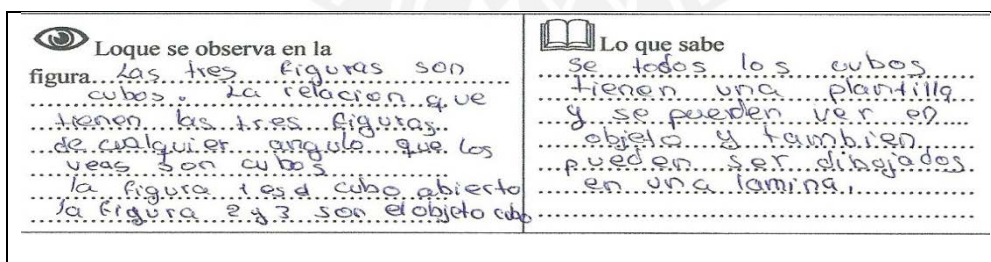 Loque se observa en la
figura Las tres figuras son
cubos. La relacion que
tienen las tres figuras
de cualquier angulo que los
veas son cubos
la figura 1 es el cubo abierto
la figura 2 y 3 son el objeto cubo
Lo que sabe
se todos los cubos
tienen una plantilla
y se pueden ver en
objeto y tambien
pueden ser dibojados
en una lamina,